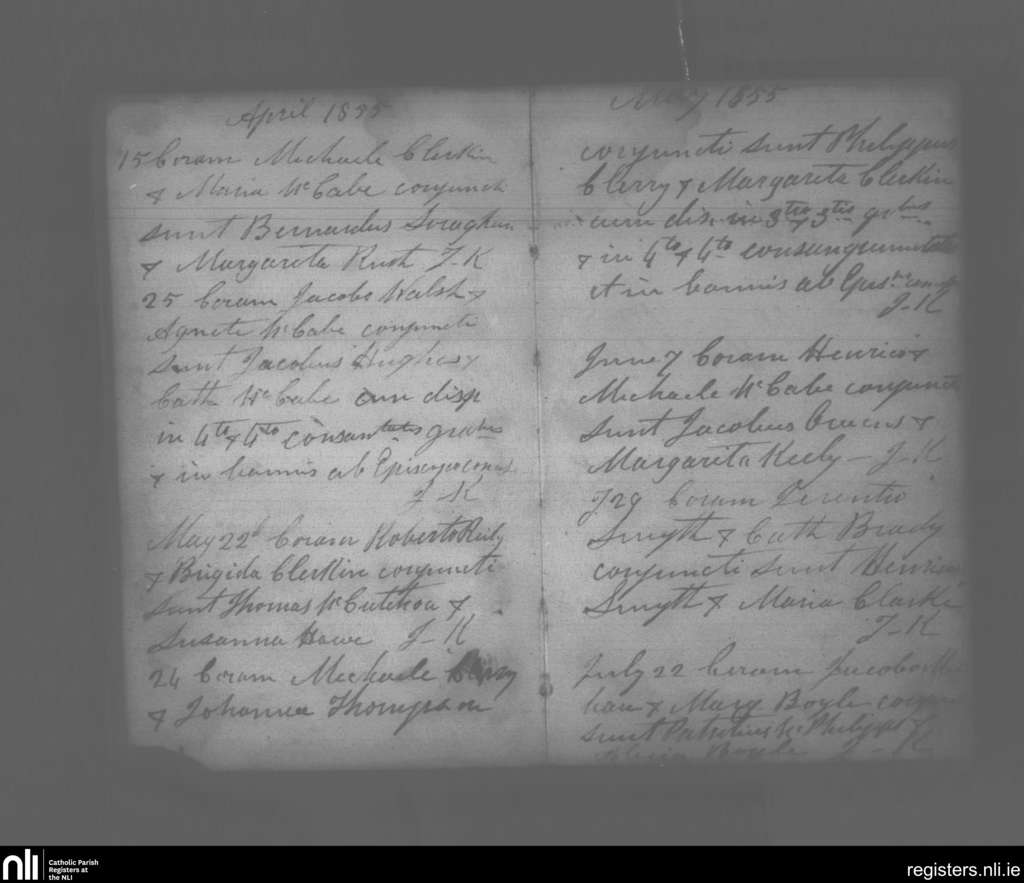 April 1855
15 Coram Michaele Clerkin
& Maria McCabe conjuncti
sunt Bernardus Soraghan
& Margarita Rush J-K
25 Coram Jacobo Walsh &
Agnete McCabe conjuncti
sunt Jacobus Hughes &
Cath McCabe cum disp
in 4to & 4to consantatis grabus
& in bannis ab Episcopo
J-K
May 22d Coram Roberto Reily
& Brigida Clerkin conjuncti
sunt Thomas McCutcheo &
Susanna Howe J-K
24 Coram Michaele
& Johanna Thompson
May 1855
conjuncti sunt Philippus
Clerry & Margarita Clerkin
cum dis. in 3tio & 3tio grbus
& in 4to & 4to consanguinitatis
et in bannis ab
J-K
June 7 Coram Henrico &
Michaele McCabe conjuncti
sunt Jacobus &
Margarita Keely - J-K
J 29 Coram Terentio
Smyth & Cath Brady
conjuncti sunt Henricus
Smyth & Maria Clarke
J-K
July 22 Coram Jacobo
& Mary Boyle
sunt Patritius McPhilipps &
Boyle J-K
nli
Catholic Parish
Registers at
the NLI
registers.nli.ie